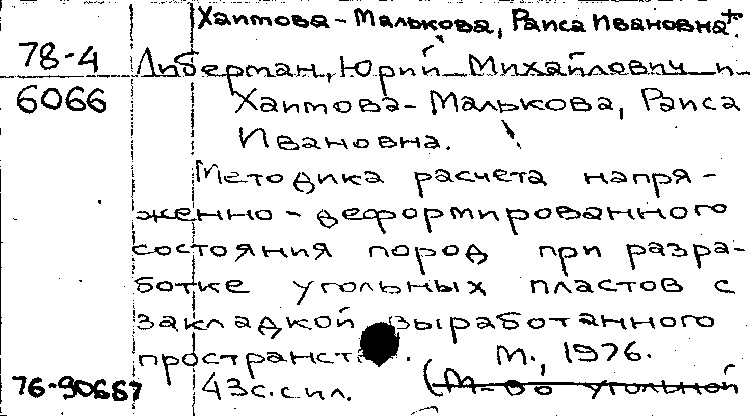 Хаитова-Малькова, Раиса Ивановна+
78-4 Либерман, Юрий Михайлович и
6066 Хаитова-Малькова, Раиса
Ивановна.
Методика расчета напря-
женно-деформированного
состояния пород при разра-
ботке угольных пластов с
закладкой выработанного
М., 1976.
76-90667 43с.сил. (М-во угольной